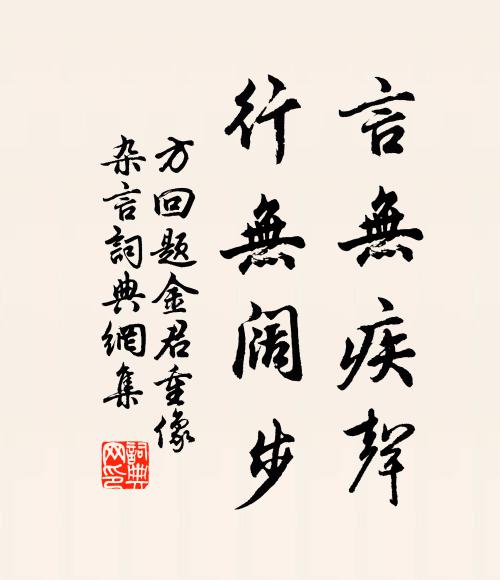 言無疾聲
行無阔步
方回题金君重像
杂言詞典網集
詞典网印